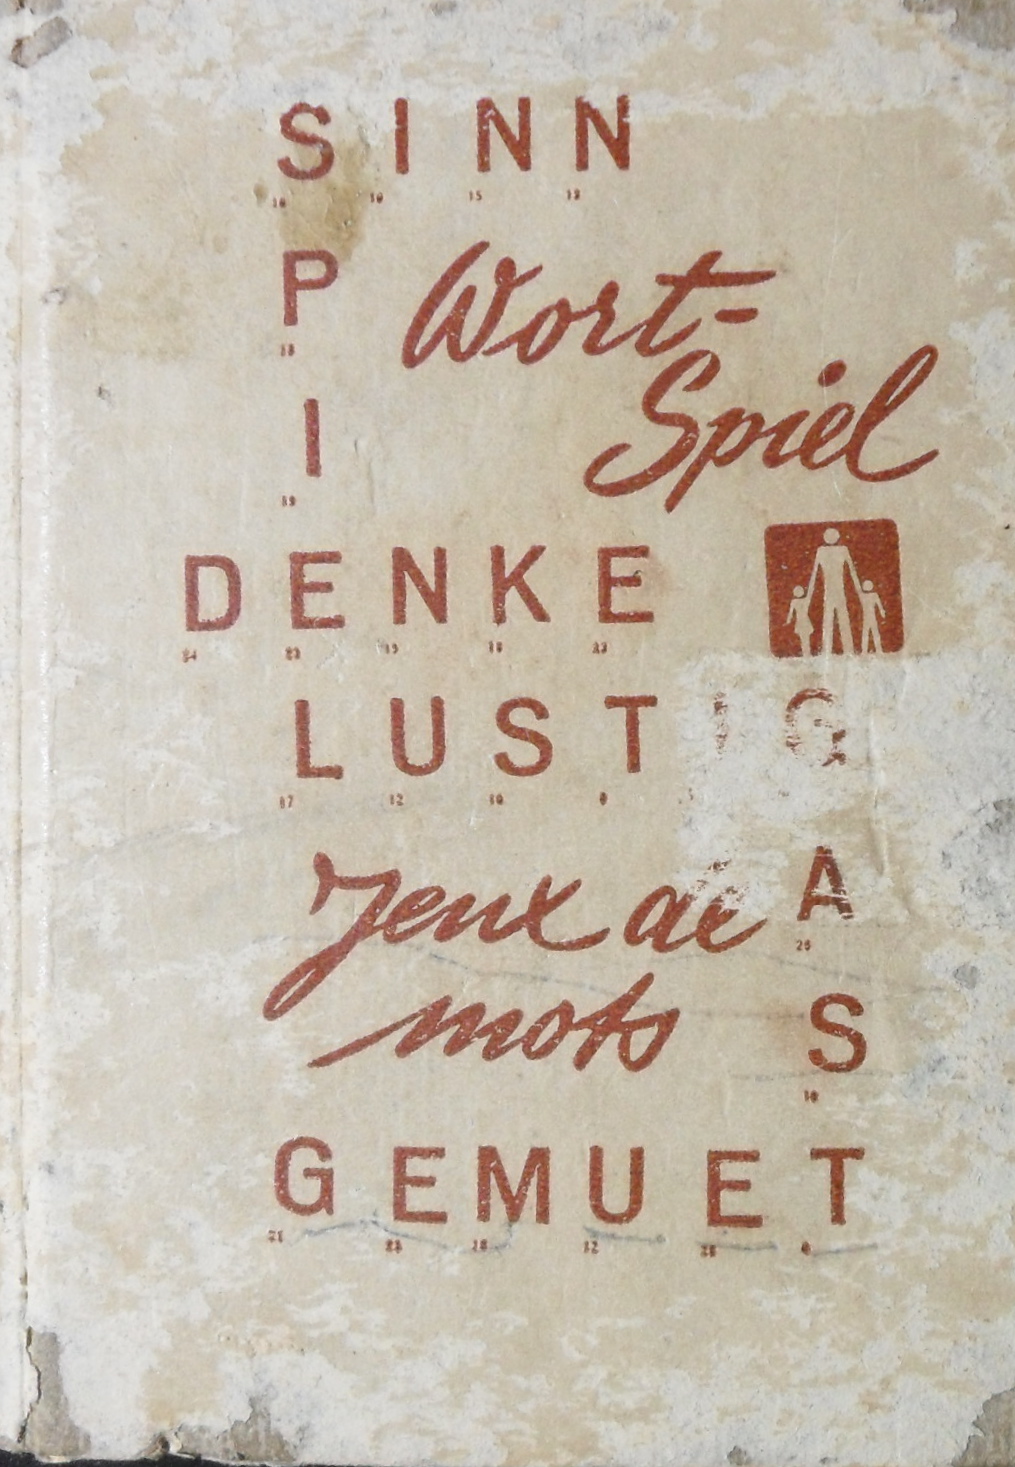 SINN
P
Wort-
Spiel
I
DENKE
LUSTIG
Jeux de
A
mots
S
GEMUET